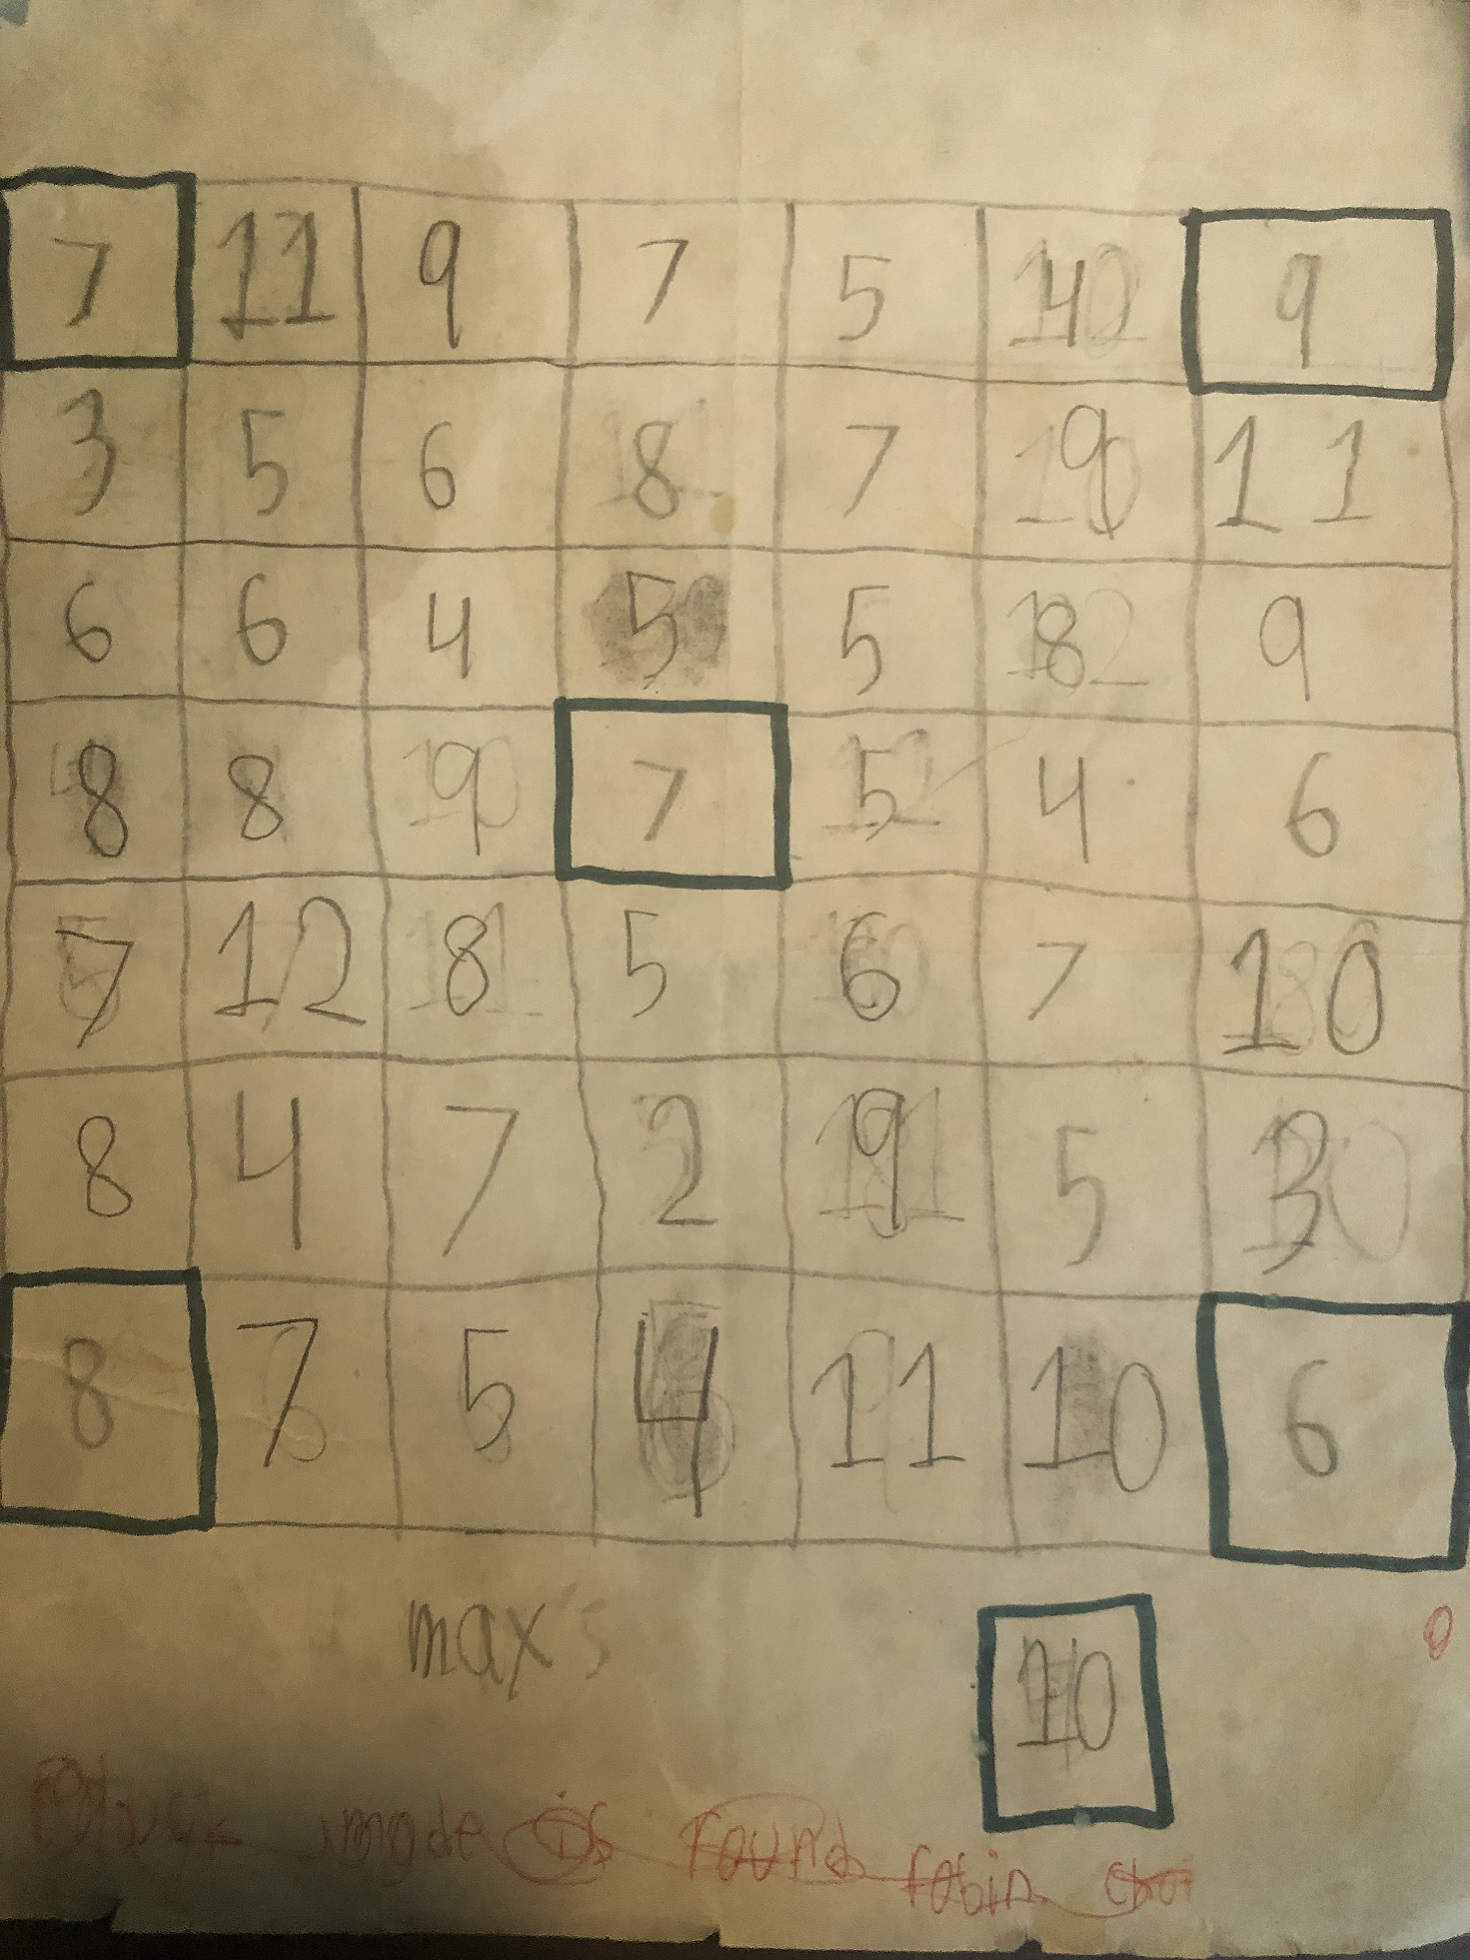 7 11 9 7 5 4 9
3 5 6 8 7 9 11
6 6 4 5 5 8 9
8 8 9 7 5 4 6
7 12 8 5 6 7 10
8 4 7 2 9 5 3
8 7 5 4 11 10 6
max's 10 0
mode is round robin